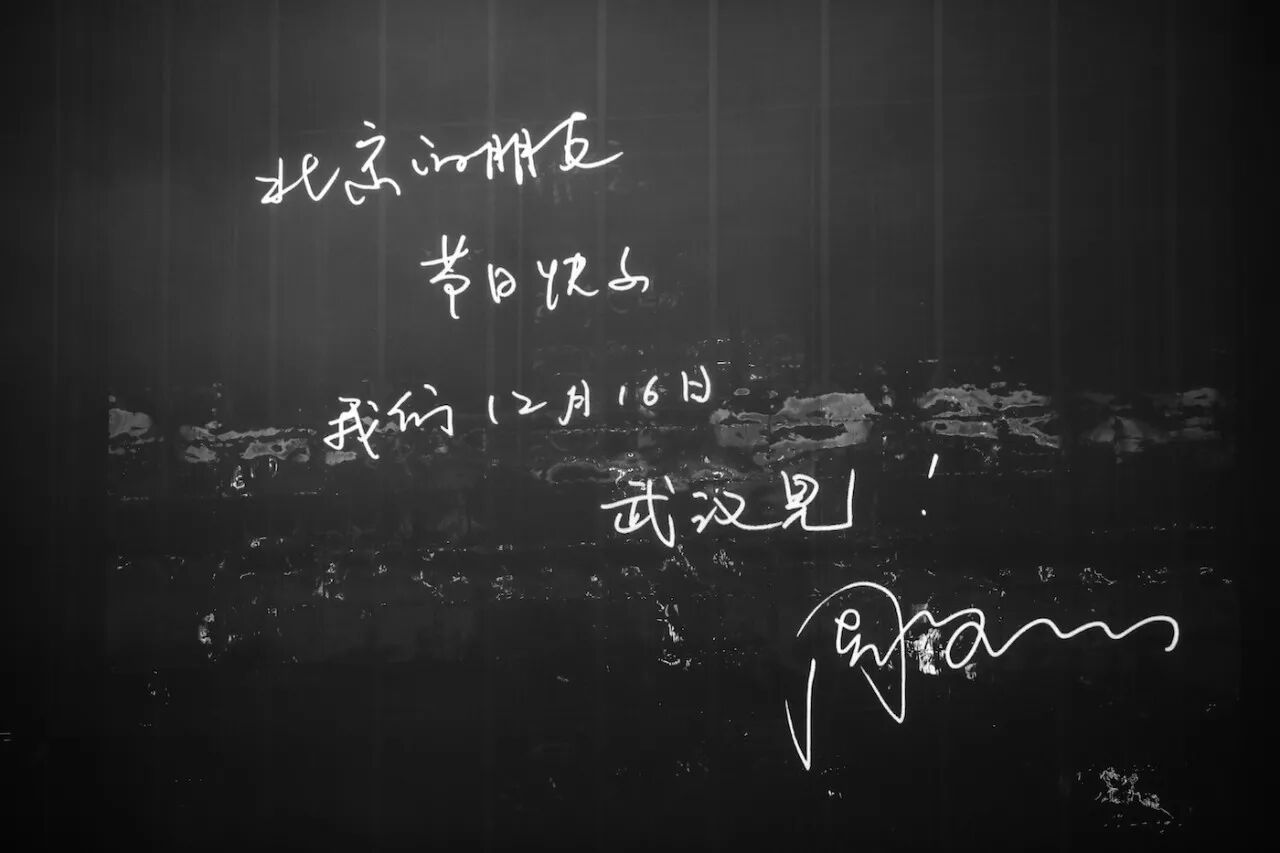 北京的朋友
节日快乐
我们12月16日
武汉见!